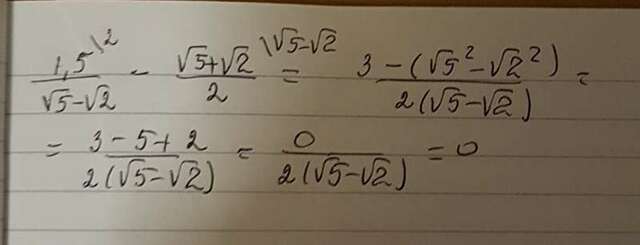 1,5\2 / (√5-√2) - (√5+√2)\√5-√2 / 2 = (3-(√5²-√2²)) / (2(√5-√2)) =
= (3-5+2) / (2(√5-√2)) = 0 / (2(√5-√2)) = 0